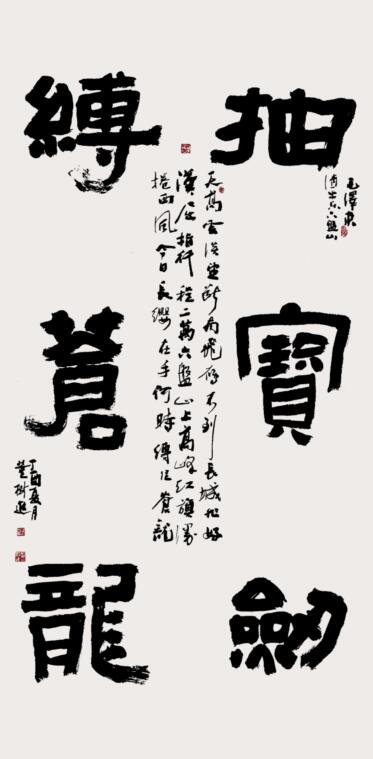 抽寶劒
毛澤東
六盤山
天高雲淡望斷南飛雁不到長城非好
漢屈指行程二萬六盤山上高峰紅旗漫
捲西風今日長纓在手何時縛住蒼龍
縛蒼龍
丁酉夏月